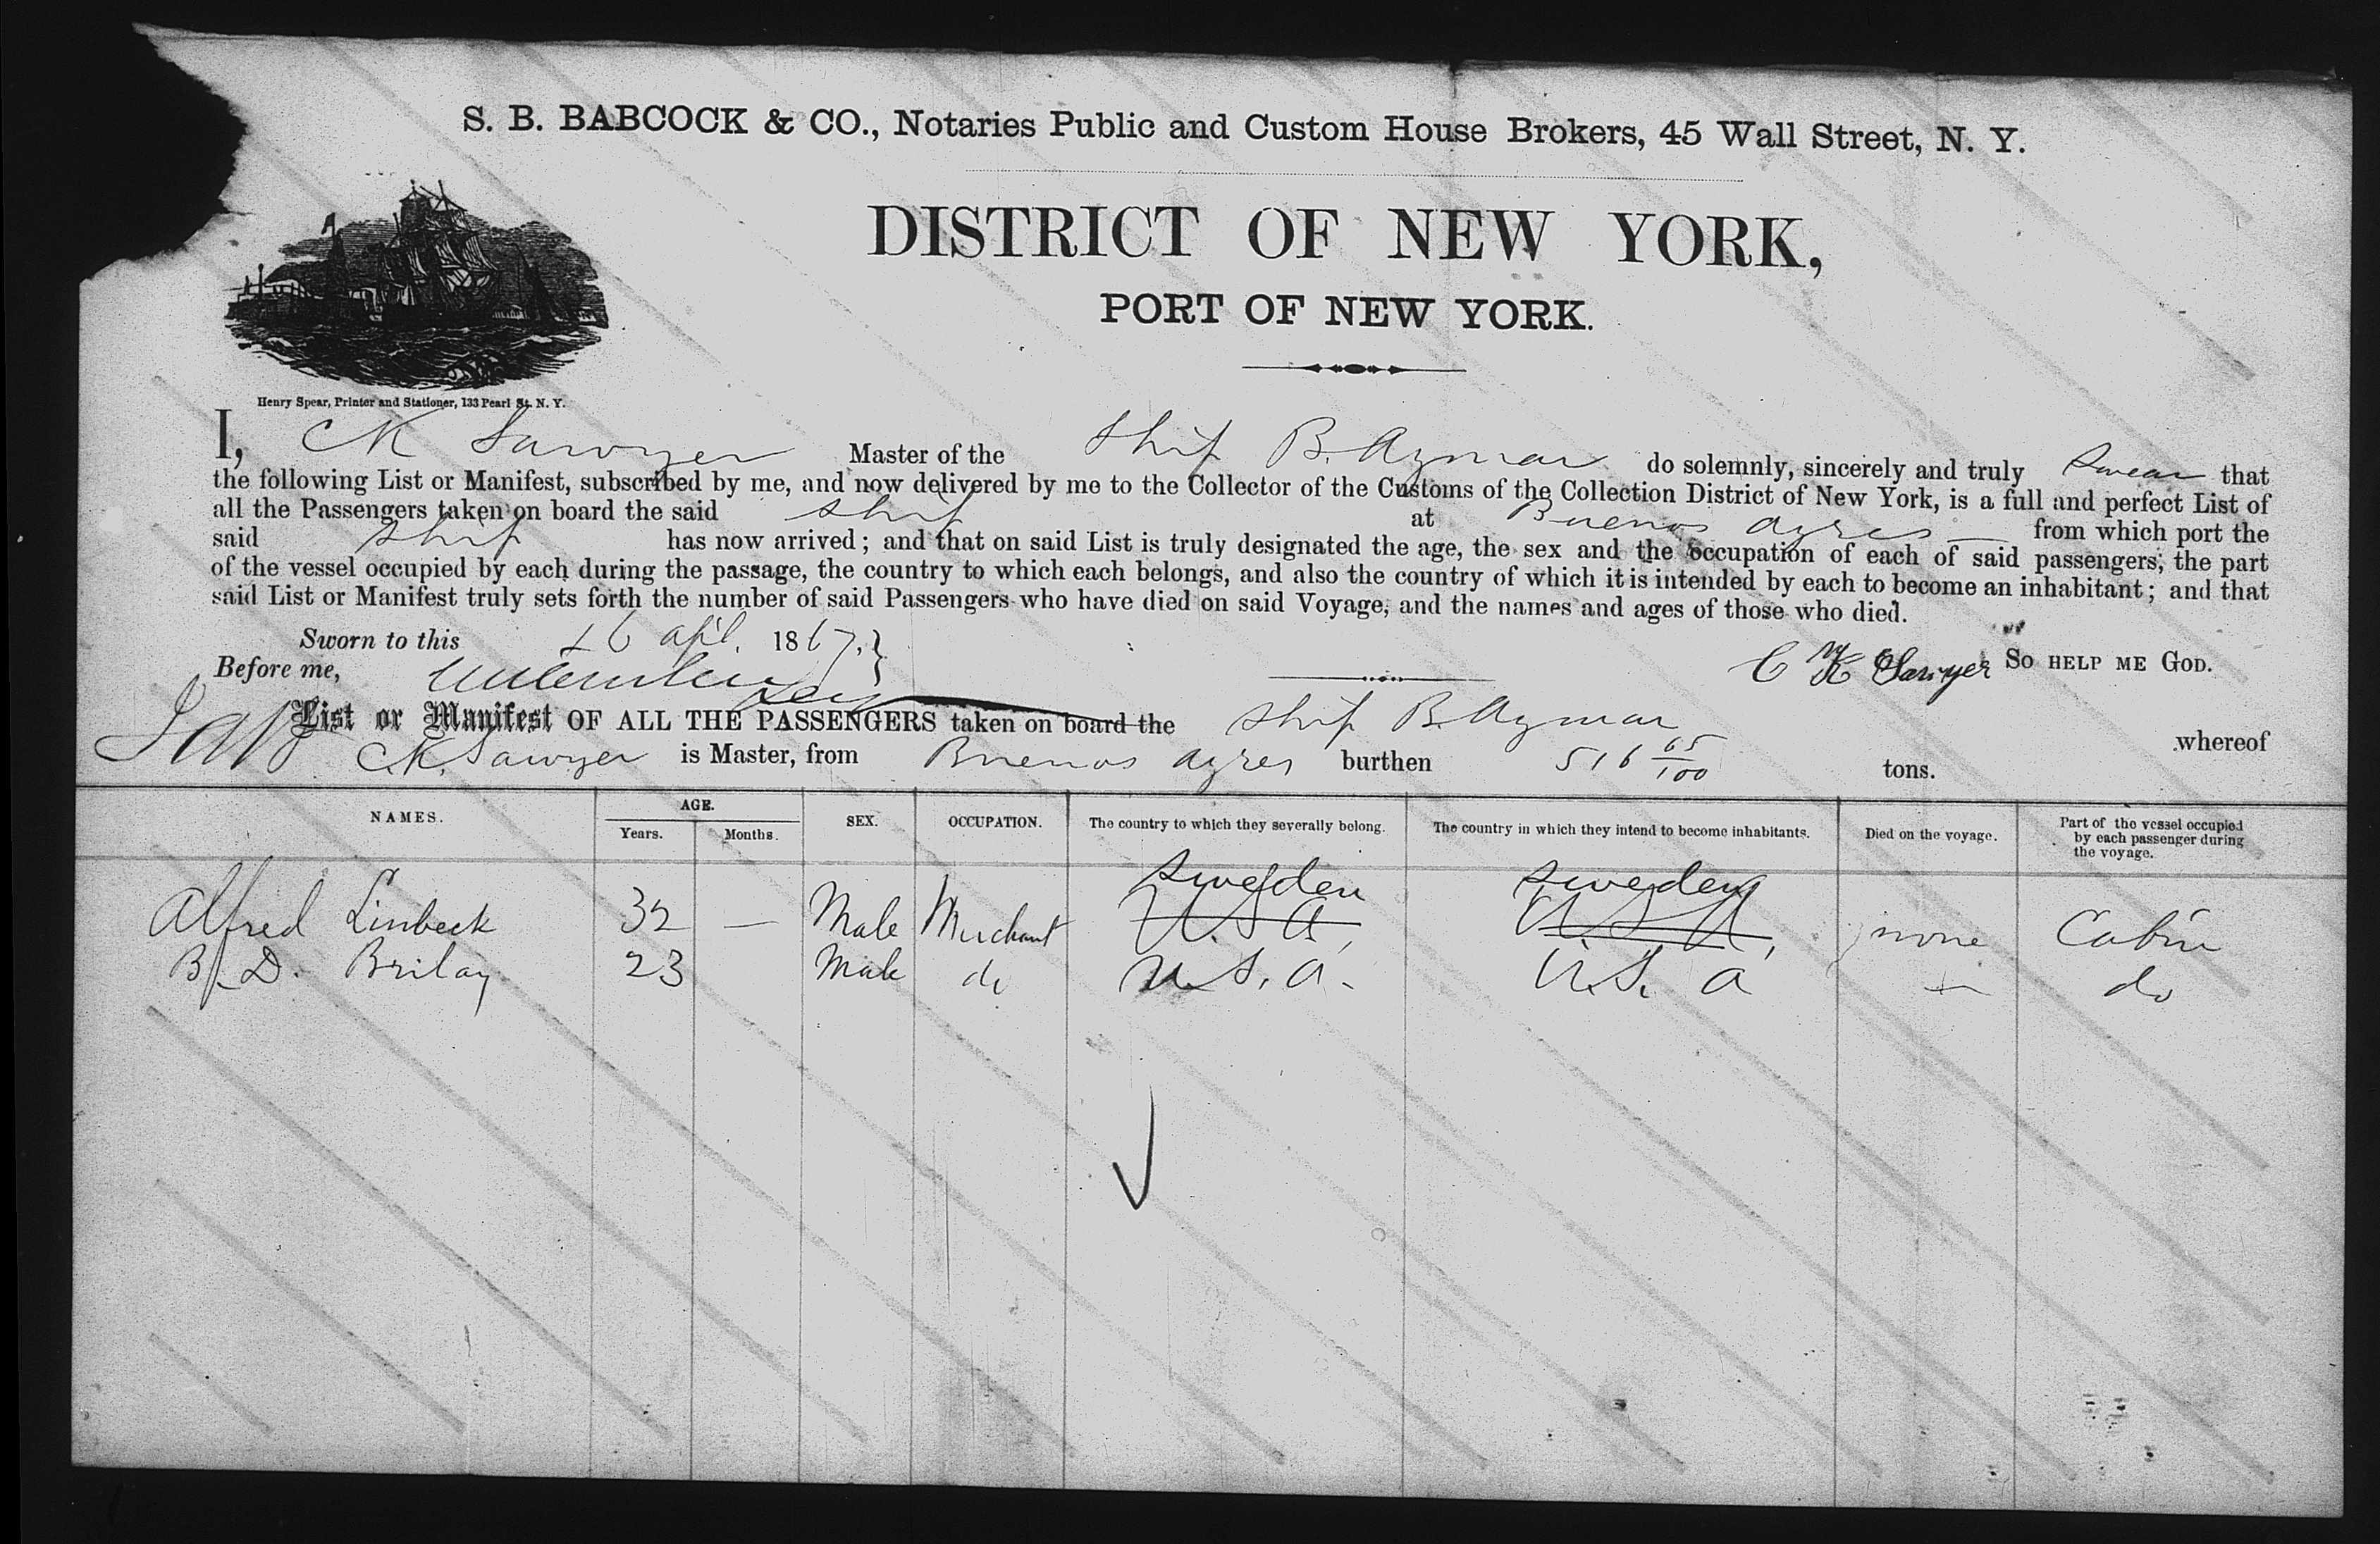 S. B. BABCOCK & CO., Notaries Public and Custom House Brokers, 45 Wall Street, N. Y.
DISTRICT OF NEW YORK,
PORT OF NEW YORK.
Henry Spear, Printer and Stationer, 133 Pearl St. N. Y.
I, CK Sawyer Master of the Ship B. Aymar do solemnly, sincerely and truly Swear that
the following List or Manifest, subscribed by me, and now delivered by me to the Collector of the Customs of the Collection District of New York, is a full and perfect List of
all the Passengers taken on board the said Ship at Buenos Ayres from which port the
said Ship has now arrived; and that on said List is truly designated the age, the sex and the occupation of each of said passengers, the part
of the vessel occupied by each during the passage, the country to which each belongs, and also the country of which it is intended by each to become an inhabitant; and that
said List or Manifest truly sets forth the number of said Passengers who have died on said Voyage, and the names and ages of those who died.
Sworn to this 26 apl. 1867.
Before me, C K Sawyer SO HELP ME GOD.
List or Manifest OF ALL THE PASSENGERS taken on board the Ship B. Aymar whereof
C.K. Sawyer is Master, from Buenos Ayres burthen 516 65/100 tons.
NAMES. AGE. Years. Months. SEX. OCCUPATION. The country to which they severally belong. The country in which they intend to become inhabitants. Died on the voyage. Part of the vessel occupied by each passenger during the voyage.
Sweden Sweden
Alfred Linbeck 32 — Male Merchant U.S.A. U.S.A. none Cabin
B. D. Brilay 23 Male do U.S.A. U.S. A do